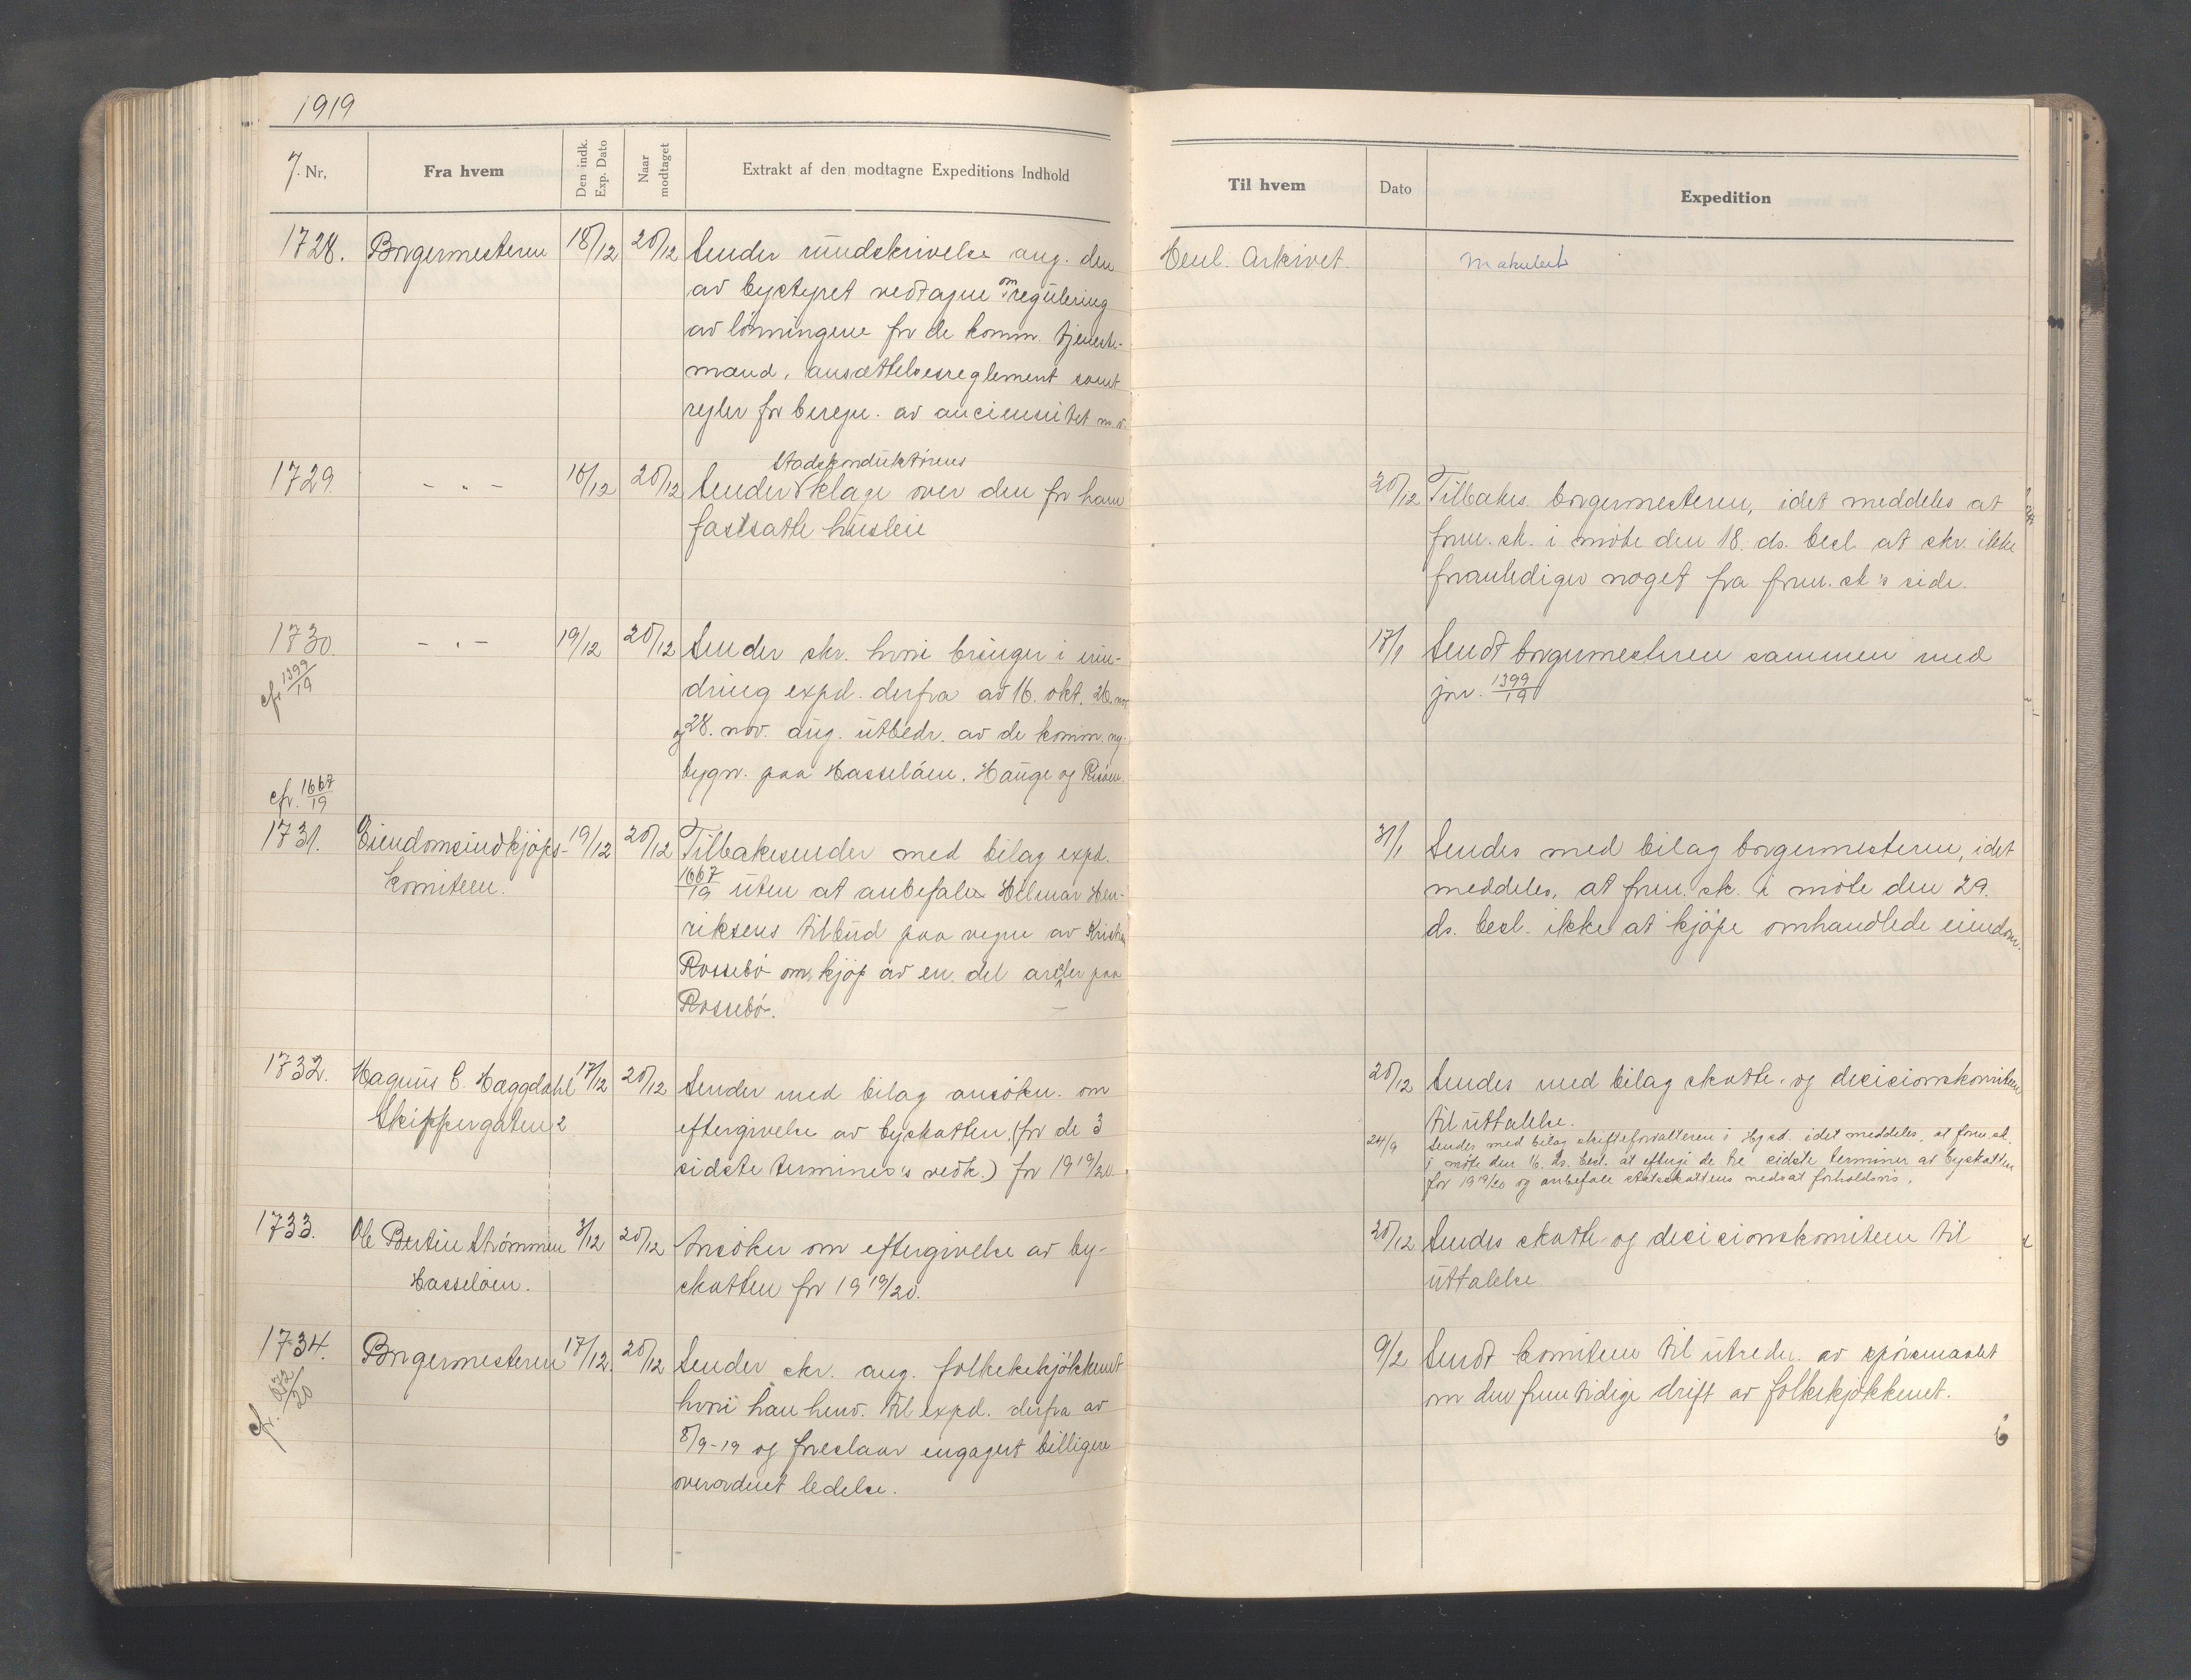 1919
J. Nr.
Fra hvem
Den indk. Exp. Dato
Naar modtaget
Extrakt af den modtagne Expeditions Indhold
Til hvem
Dato
Expedition
1728. Borgermesteren 18/12 20/12 Sender rundskrivelse ang. den
av bystyret vedtagne omregulering
av lönningene for de komm. tjeneste-
mænd, ansættelsesreglement samt
regler for beregn. av anciennitet m.v.
Henl. Arkivet. Makulert
1729. - " - 16/12 20/12 Sender stadskonduktörens klage over den for ham
fastsatte husleie
20/12 Tilbakes. borgermesteren, idet meddeles at
form.sk. i möte den 18. ds. besl. at skr. ikke
foranlediger noget fra form.sk's side.
1730. - " - 19/12 20/12 Sender skr. hvori bringer i erin-
cfr. 1399/19
dring expd. derfra av 16. okt. 26. nov.
og 28. nov. ang. utbedr. av de komm. ny-
bygn. paa Hasselöen, Hauge og Risöen.
17/1 Sendt borgermesteren sammen med
jnr. 1399/19
cfr. 1667/19
1731. Eiendomsindkjöps- 19/12 20/12 Tilbakesender med bilag expd.
komiteen. 1667/19 uten at anbefale Helmar Hen-
riksens tilbud paa vegne av Kristian
Rossebö om kjöp av en del arealer paa
Rossebö.
31/1 Sendes med bilag borgermesteren, idet
meddeles, at form.sk. i möte den 29.
ds. besl. ikke at kjöpe omhandlede eiendom.
1732. Magnus C. Hæggdahl 17/12 20/12 Sender med bilag ansökn. om
Skippergaten 2 eftergivelse av byskatten (for de 3
sidste termines's vedk.) for 1919/20.
20/12 Sendes med bilag skatte- og decisionskomiteen
til uttalelse.
24/9 Sendes med bilag skifteforvalteren i Hgsd. idet meddeles, at form.sk.
i möte den 16. ds. besl. at eftergi de tre sidste terminer av byskatten
for 1919/20 og anbefale statsskattens nedsat forholdsvis.
1733. Ole Bertin Strömmen 3/12 20/12 Ansöker om eftergivelse av by-
Hasselöen. skatten for 1919/20.
20/12 Sendes skatte- og decisionskomiteen til
uttalelse
1734. Borgermesteren 17/12. 20/12 Sender skr. ang. folkekjökkenet
cfr. 672/20
hvori han henv. til expd. derfra av
8/9-19 og foreslaar engagert billigere
overordnet ledelse.
9/2 Sendt komiteen til utredn. av spörsmaalet
om den fremtidige drift av folkekjökkenet.